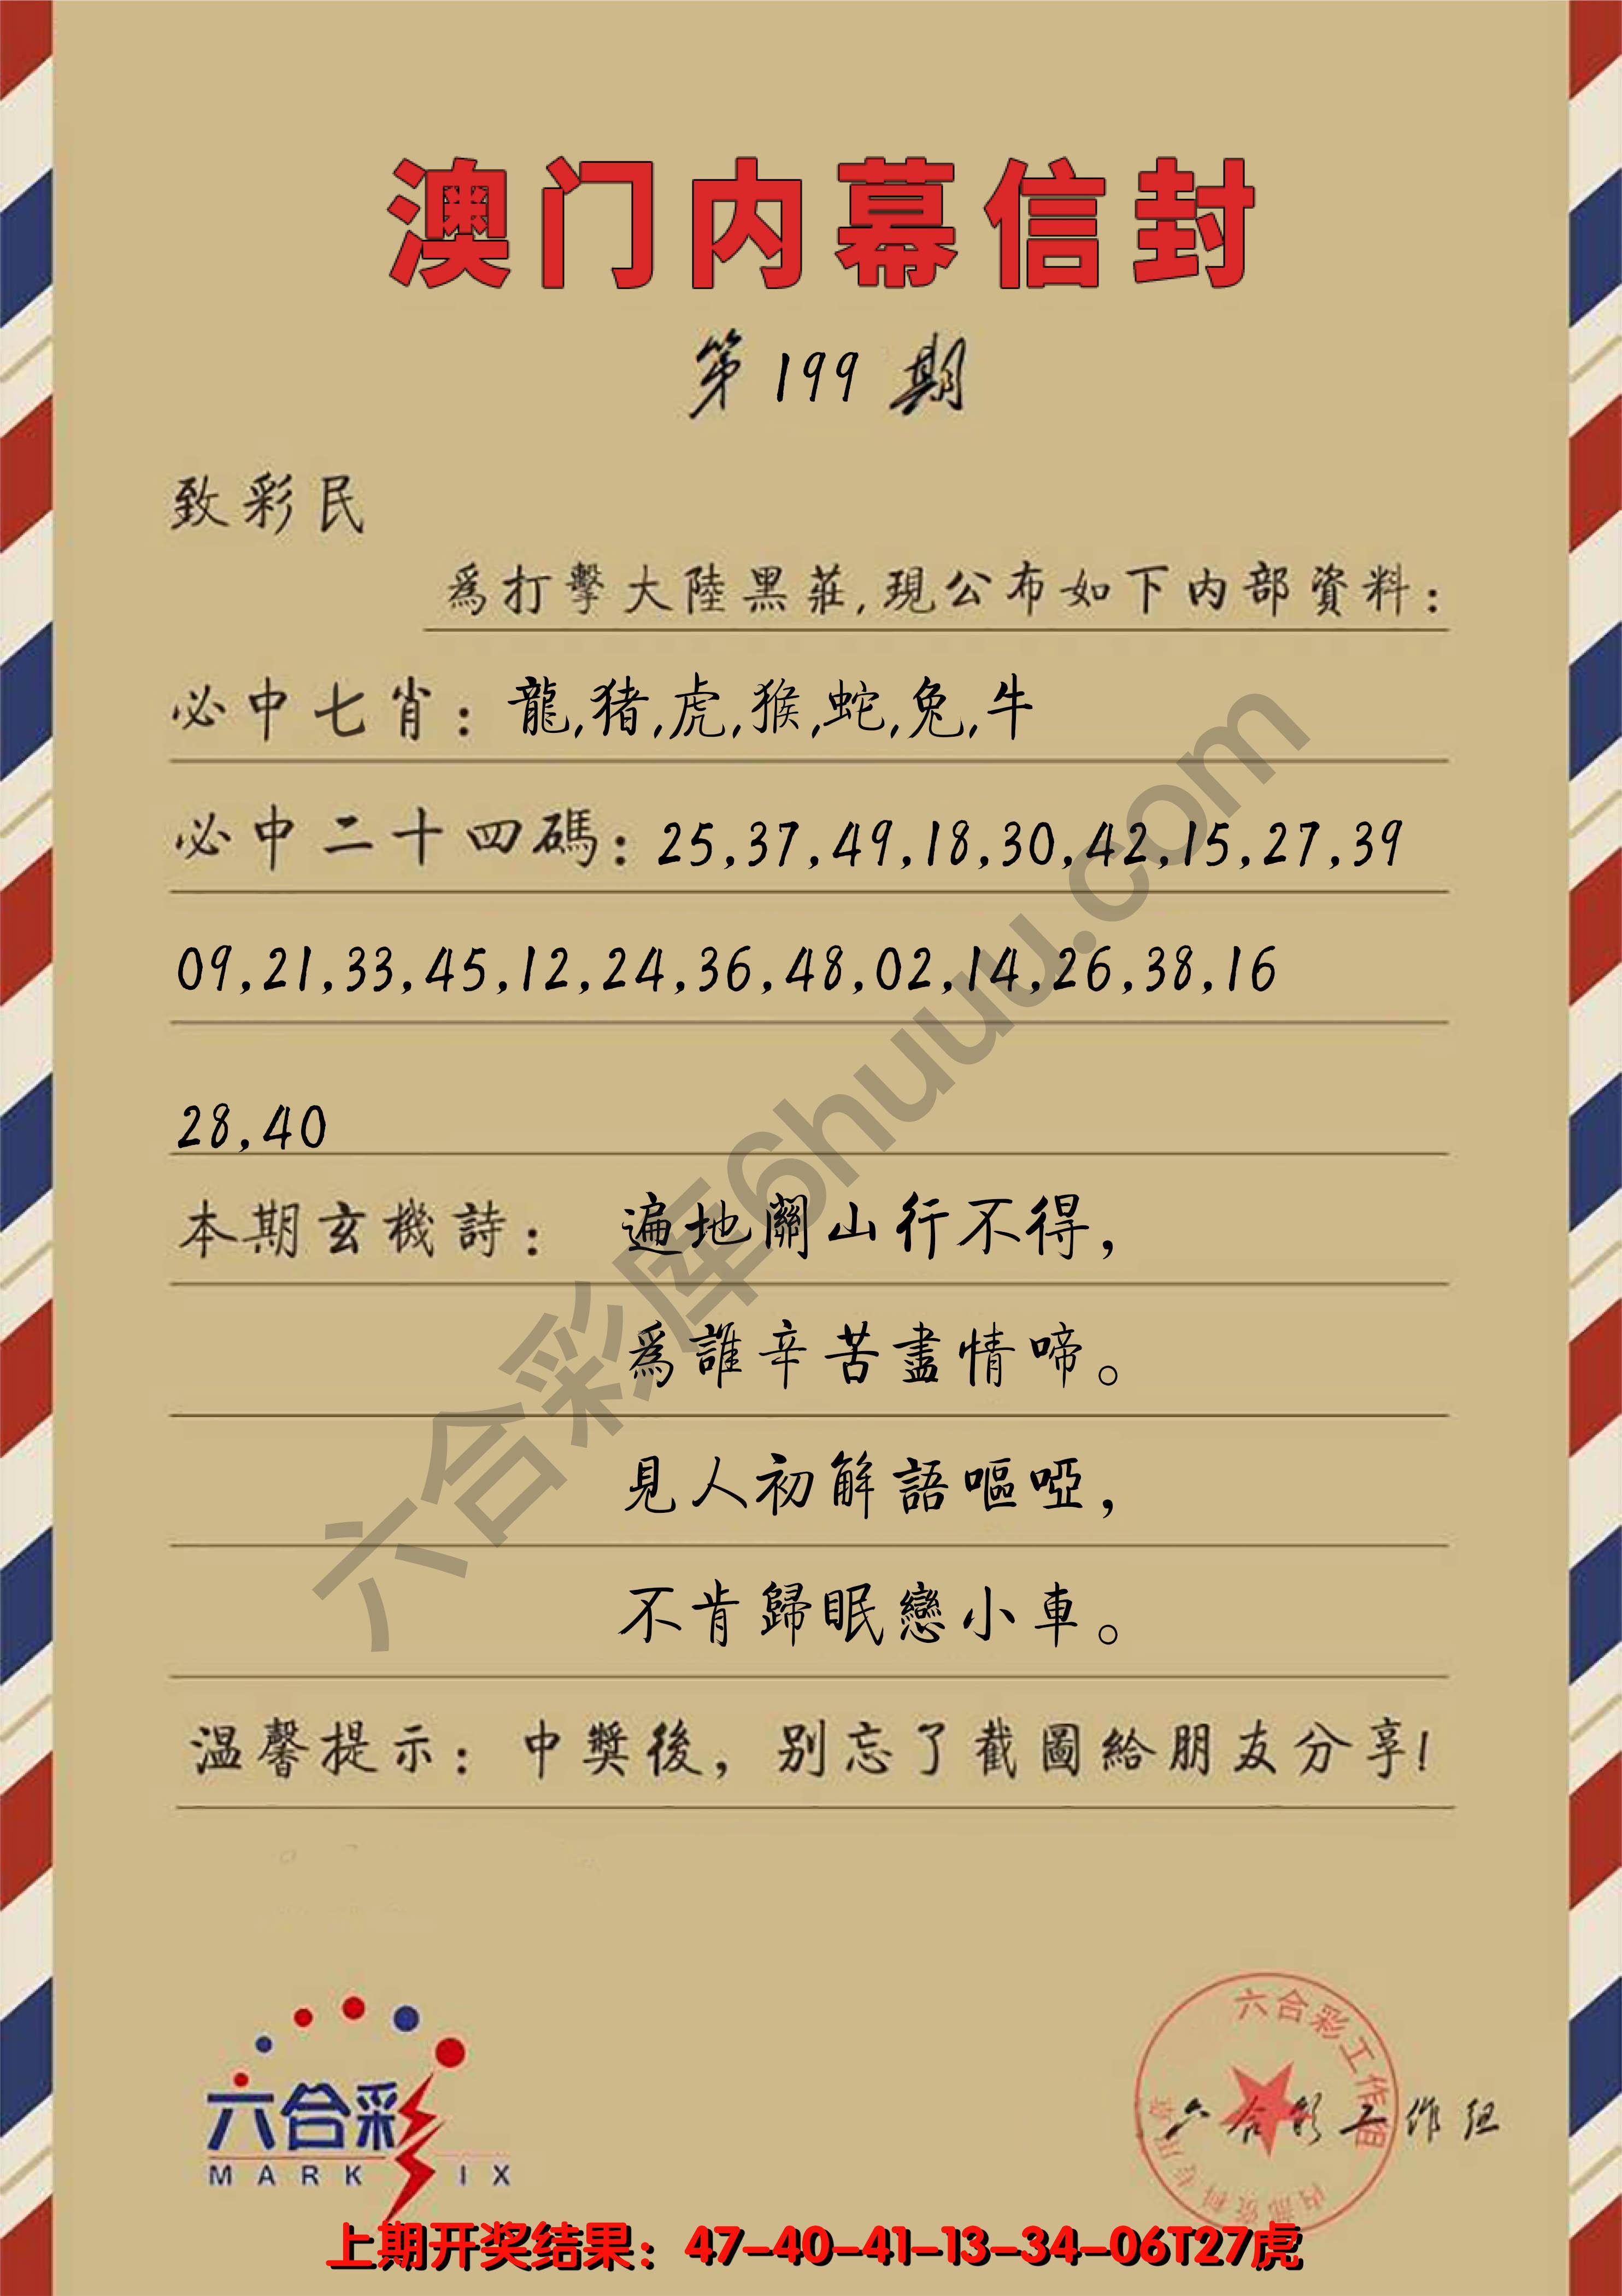 澳门内幕信封
第199期
致彩民
為打擊大陸黑莊,現公布如下内部資料:
必中七肖:龍,猪,虎,猴,蛇,兔,牛
必中二十四碼:25,37,49,18,30,42,15,27,39
09,21,33,45,12,24,36,48,02,14,26,38,16
28,40
本期玄機詩: 遍地關山行不得,
為誰辛苦盡情啼。
見人初解語嘔啞,
不肯歸眠戀小車。
温馨提示:中獎後,别忘了截圖給朋友分享!
六合彩库6huuu.com
六合彩
MARK IX
六合彩工作组
内部资料专用章
六合彩工作组
上期开奖结果:47-40-41-13-34-06T27虎